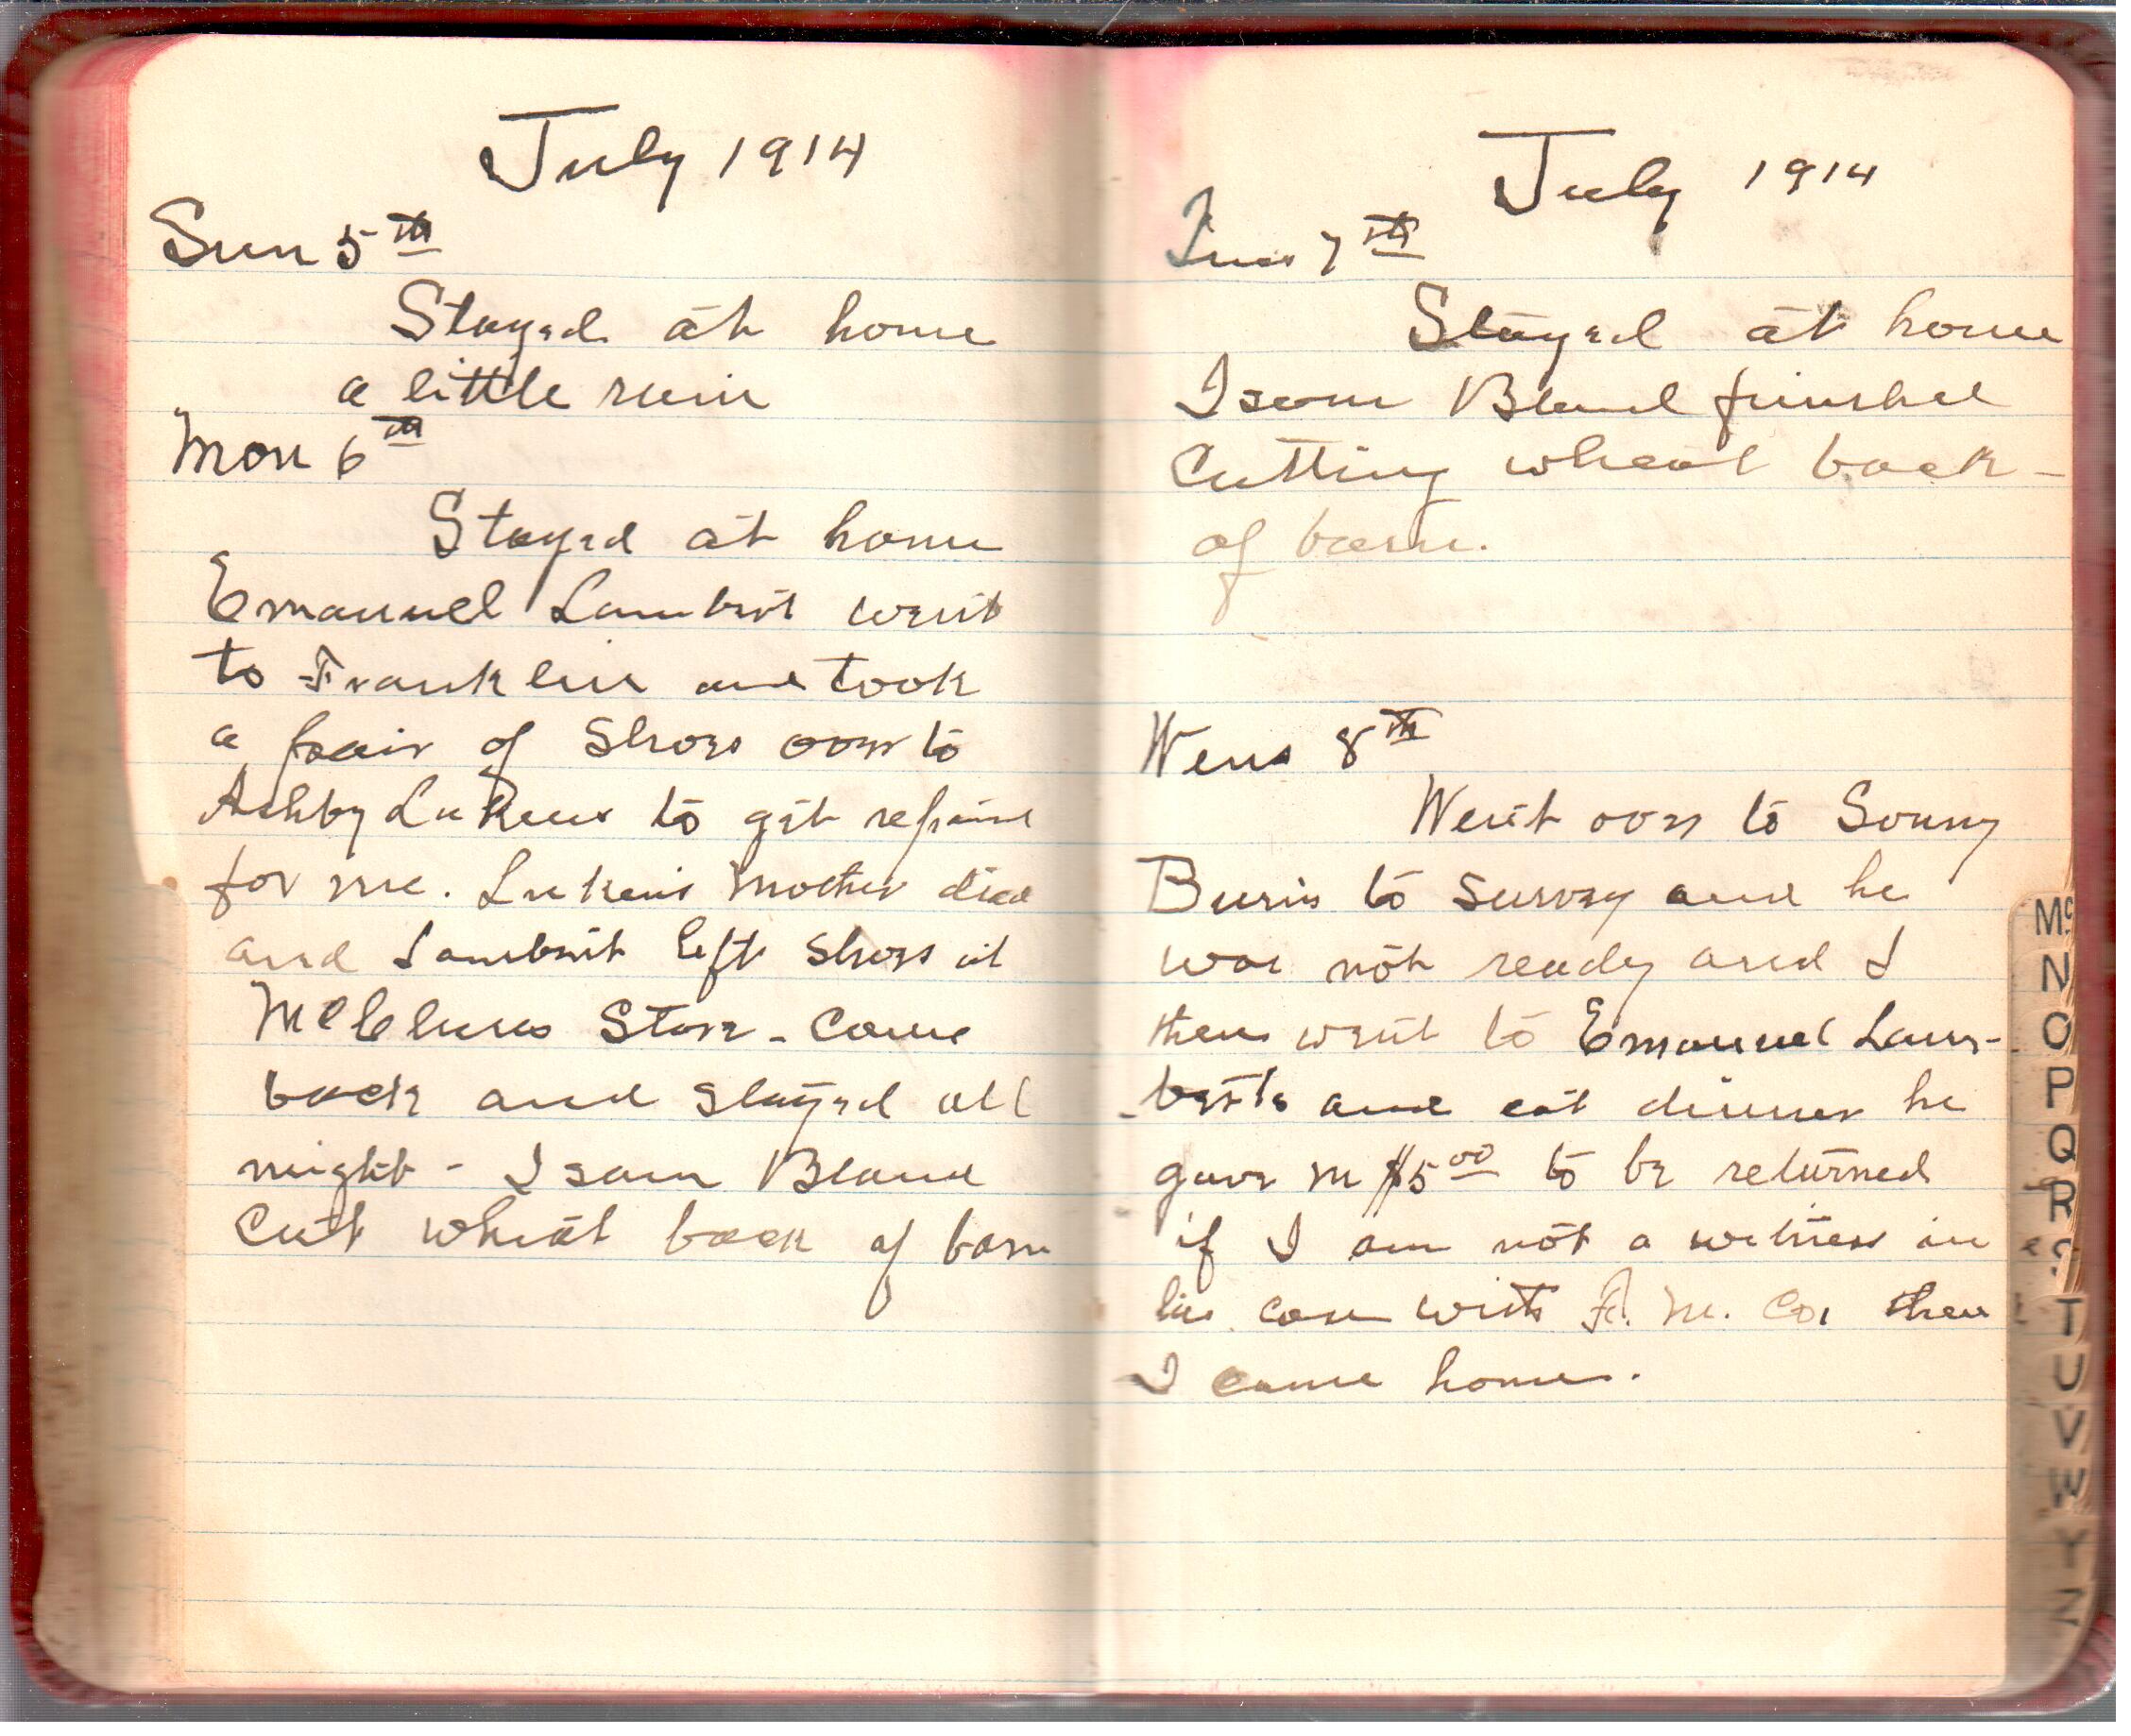 July 1914
Sun 5th
Stayed at home
a little rain
Mon 6th
Stayed at home
Emanuel Lambert went
to Franklin and took
a pair of Shoes over to
Ashby Lukens to get repaird
for me. Lukens Mother died
and Lambert left Shoes at
McClures Store - Came
back and stayed all
night - Isom Bland
Cut wheat back of barn
July 1914
Tues 7th
Stayed at home
Isom Bland finished
Cutting wheat back -
of barn.
Wens 8th
Went over to Sonny
Burns to survey and he
was not ready and I
then went to Emanuel Lam-
-berts and eat dinner he
gave m $5 00 to be returned
if I am not a witness in
his case with F. M. Co, then
I came home.
Mc
N
O
P
Q
R
S
T
U
V
W
Y
Z